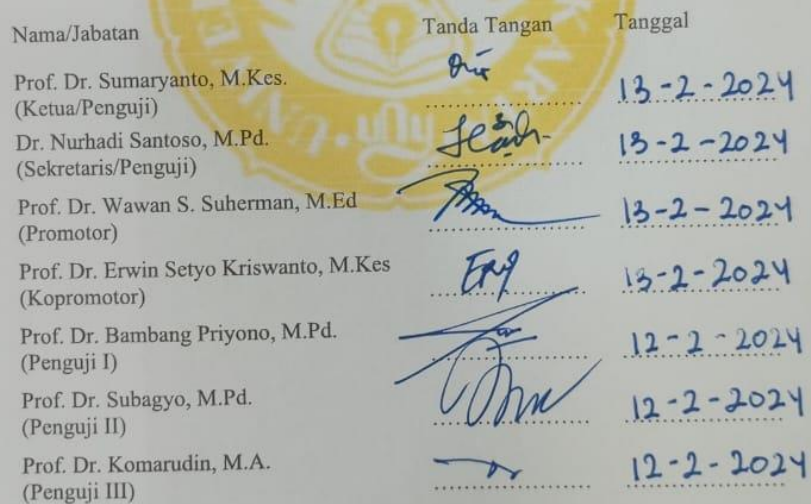 Nama/Jabatan Tanda Tangan Tanggal
Prof. Dr. Sumaryanto, M.Kes.
(Ketua/Penguji) 13-2-2024
Dr. Nurhadi Santoso, M.Pd.
(Sekretaris/Penguji) 13-2-2024
Prof. Dr. Wawan S. Suherman, M.Ed
(Promotor) 13-2-2024
Prof. Dr. Erwin Setyo Kriswanto, M.Kes
(Kopromotor) 13-2-2024
Prof. Dr. Bambang Priyono, M.Pd.
(Penguji I) 12-2-2024
Prof. Dr. Subagyo, M.Pd.
(Penguji II) 12-2-2024
Prof. Dr. Komarudin, M.A.
(Penguji III) 12-2-2024